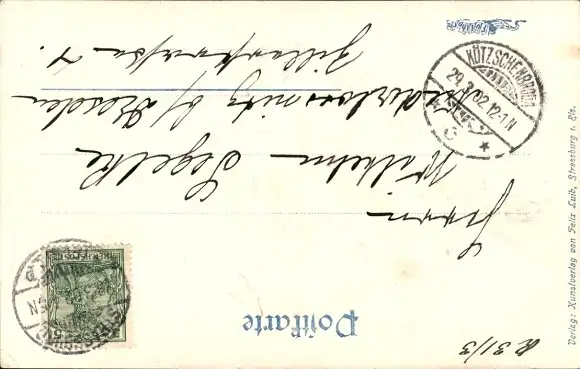 Postkarte
Herrn
Wilhelm Segelke
Niederlössnitz b/ Dresden
Zillerstrasse 4.
KÖTZSCHENBRODA
29.3.02. 12-1 N
R 31/3
Verlag: Kunstverlag von Felix Luib, Strassburg i. Els.